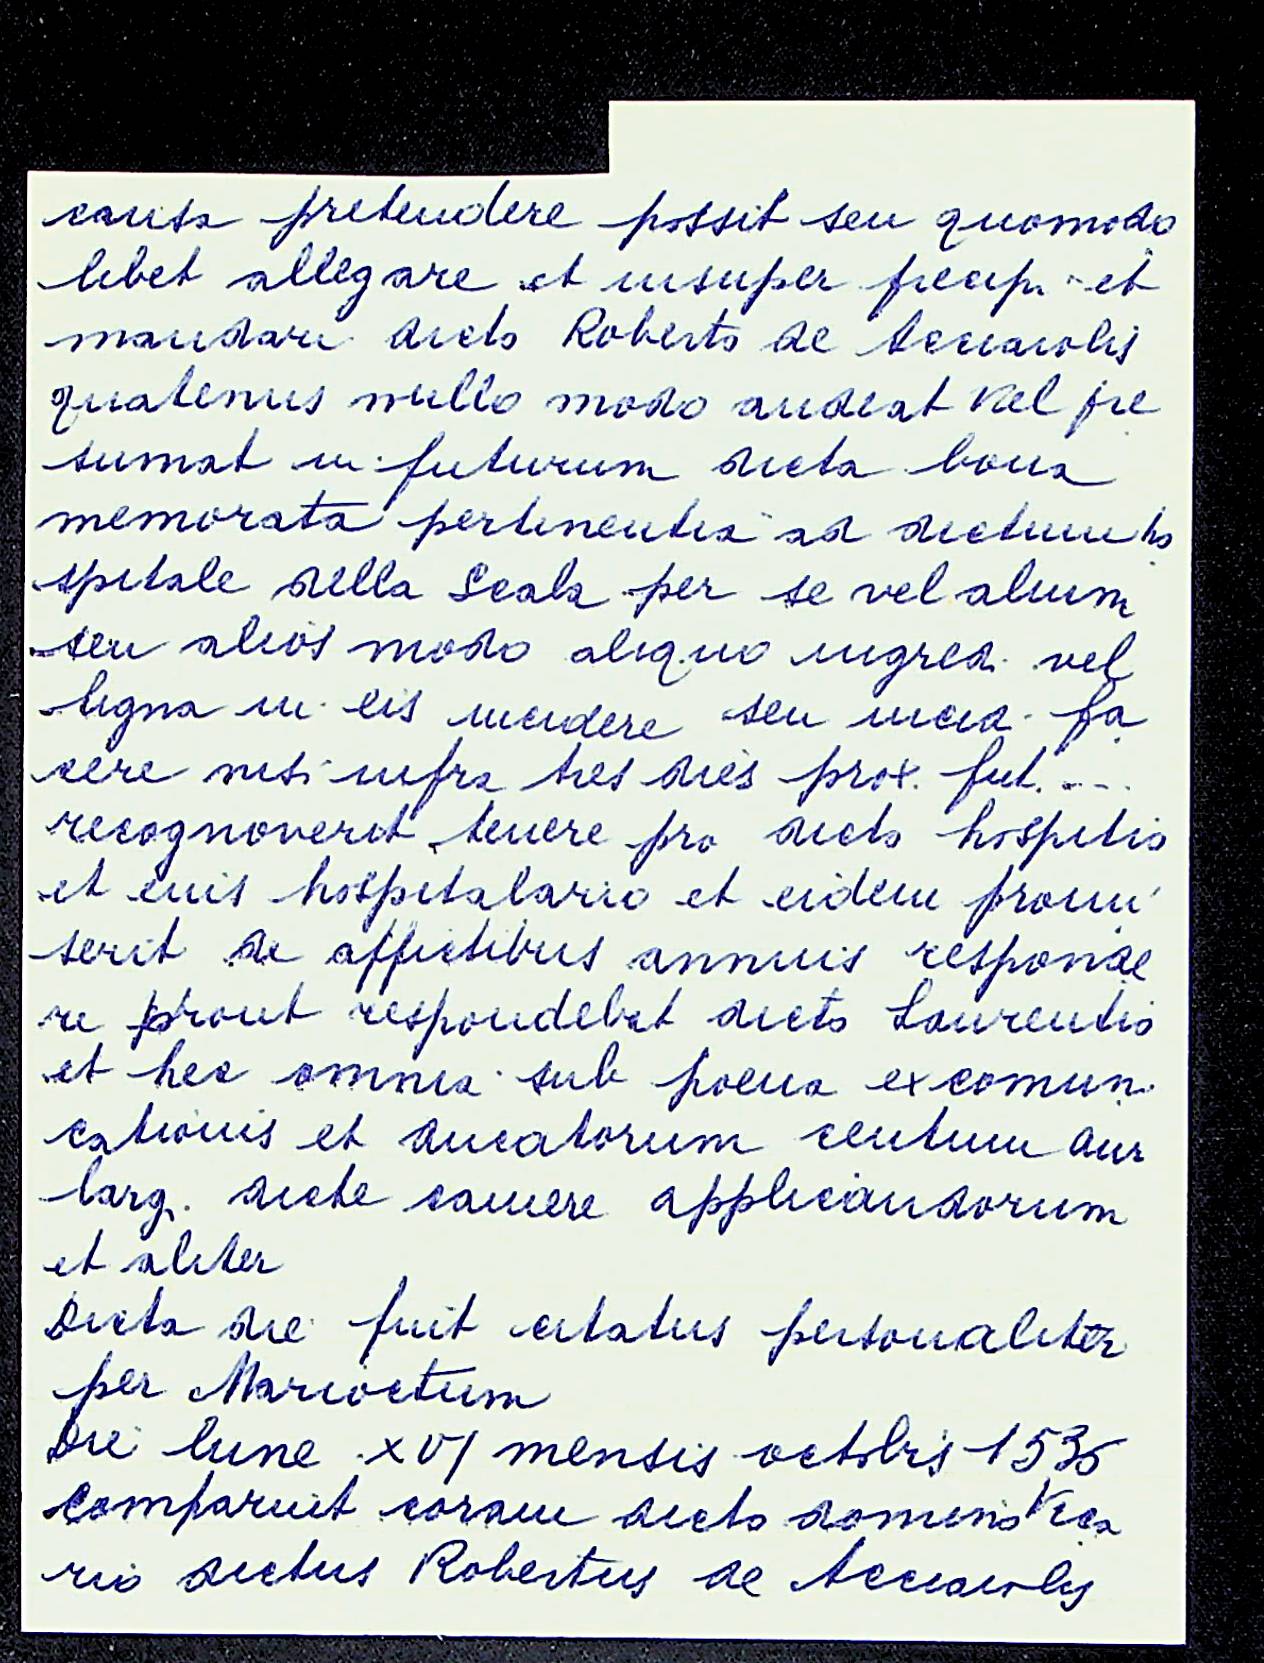 causa pretendere possit seu quomodo
libet allegare et insuper precip. et
mandari dicto Roberto de Acciaiolis
quatenus nullo modo audeat vel pre
sumat in futurum dicta bona
memorata pertinentia ad dictum ho
spitale della Scala per se vel alium
seu alios modo aliquo ingred. vel
ligna in eis incidere seu incid. fa
cere nisi infra tres dies prox. fut. ...
recognoverit tenere pro dicto hospitio
et eius hospitalario et eidem promi
serit de affictibus annuis responde
re prout respondebat dicto Laurentio
et hec omnia sub poena excomun.
cationis et ducatorum centum aur
larg. dicte camere applicandorum
et aliter
Dicta die fuit citatus personaliter
per Marioctum
Die lune XVI mensis octobris 1535
Comparuit coram dicto domino Vica
rio dictus Robertus de Acciaiolis